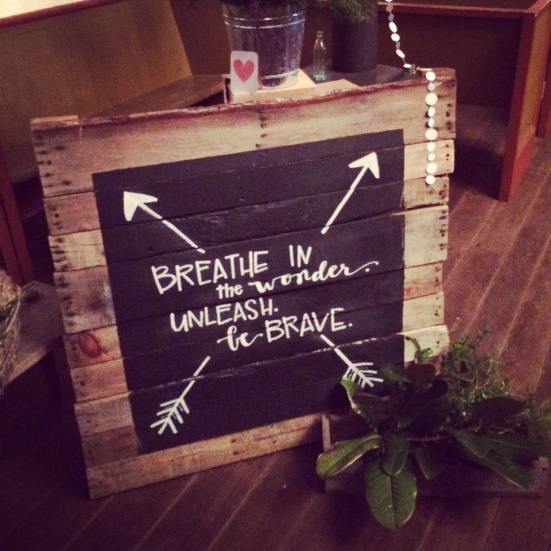 BREATHE IN
the wonder.
UNLEASH.
be BRAVE.